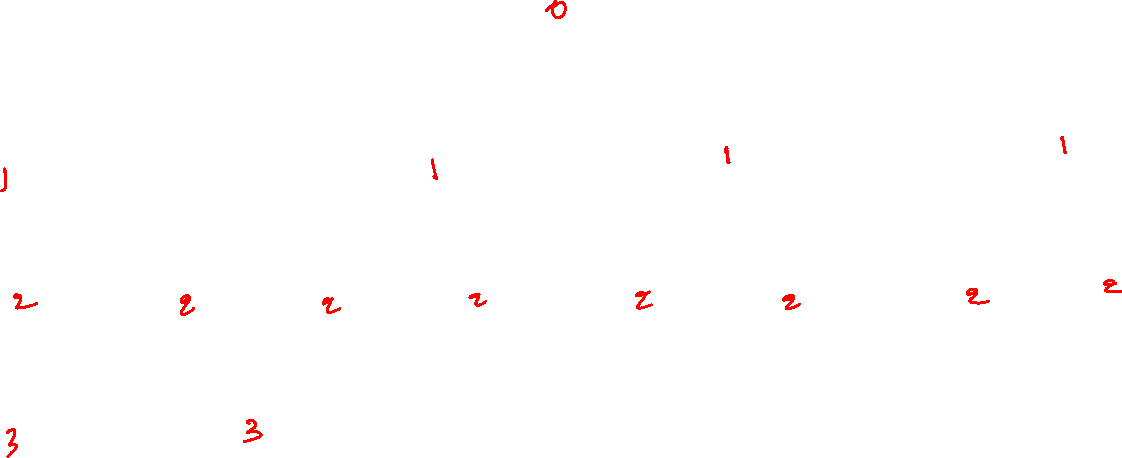 0
1 1 1 1
2 2 2 2 2 2 2 2
3 3